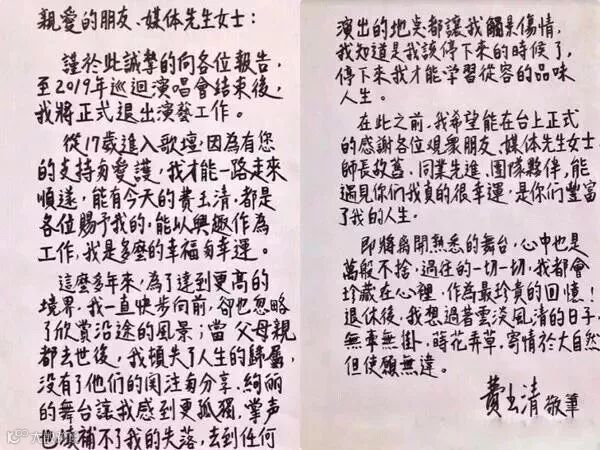 親愛的朋友、媒体先生女士：
謹於此誠摯的向各位報告，
至2019年巡迴演唱會結束後，
我將正式退出演藝工作。
從17歲進入歌壇，因為有您
的支持与愛護，我才能一路走來
順遂，能有今天的費玉清，都是
各位賜予我的，能以興趣作為
工作，我是多麼的幸福与幸運。
這麼多年來，為了達到更高的
境界，我一直快步向前，卻也忽略
了欣賞沿途的風景；當父母親
都去世後，我頓失了人生的歸屬，
沒有了他們的関注与分享，絢麗
的舞台讓我感到更孤獨，掌声
也填補不了我的失落，去到任何
演出的地点都讓我觸景傷情，
我知道是我該停下來的時候了，
停下來我才能學習從容的品味
人生。
在此之前，我希望能在台上正式
的感謝各位觀衆朋友、媒体先生女士、
師長故舊、同業先進、團隊夥伴，能
遇見你們我真的很幸運，是你們豐富
了我的人生。
即將離開熟悉的舞台，心中也是
萬般不捨，過往的一切一切，我都會
珍藏在心裡，作為最珍貴的回憶！
退休後，我想過著雲淡風清的日子，
無牽無掛，蒔花弄草，寄情於大自然
但使願無違。
費玉清 敬筆